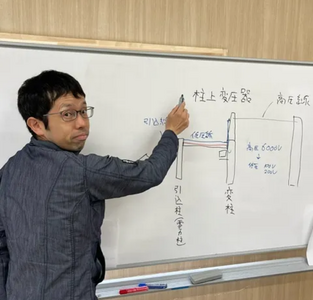 柱上変圧器
高圧線
引込線
低圧線
高圧6000V
↓
低圧 100V
200V
引込柱(電力柱)
変柱